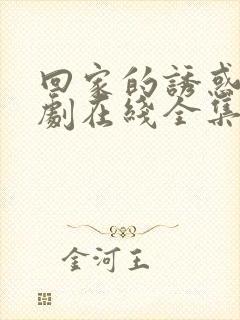 回家的誘惑
劇在綫全集
金河王